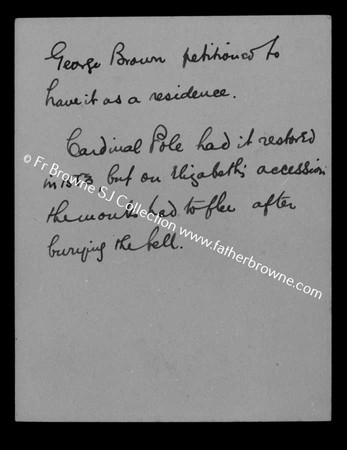 George Brown petitioned to
have it as a residence.
Cardinal Pole had it restored
in 1553, but on Elizabeth's accession
the monks had to flee after
burying the bell.
© Fr Browne SJ Collection www.fatherbrowne.com